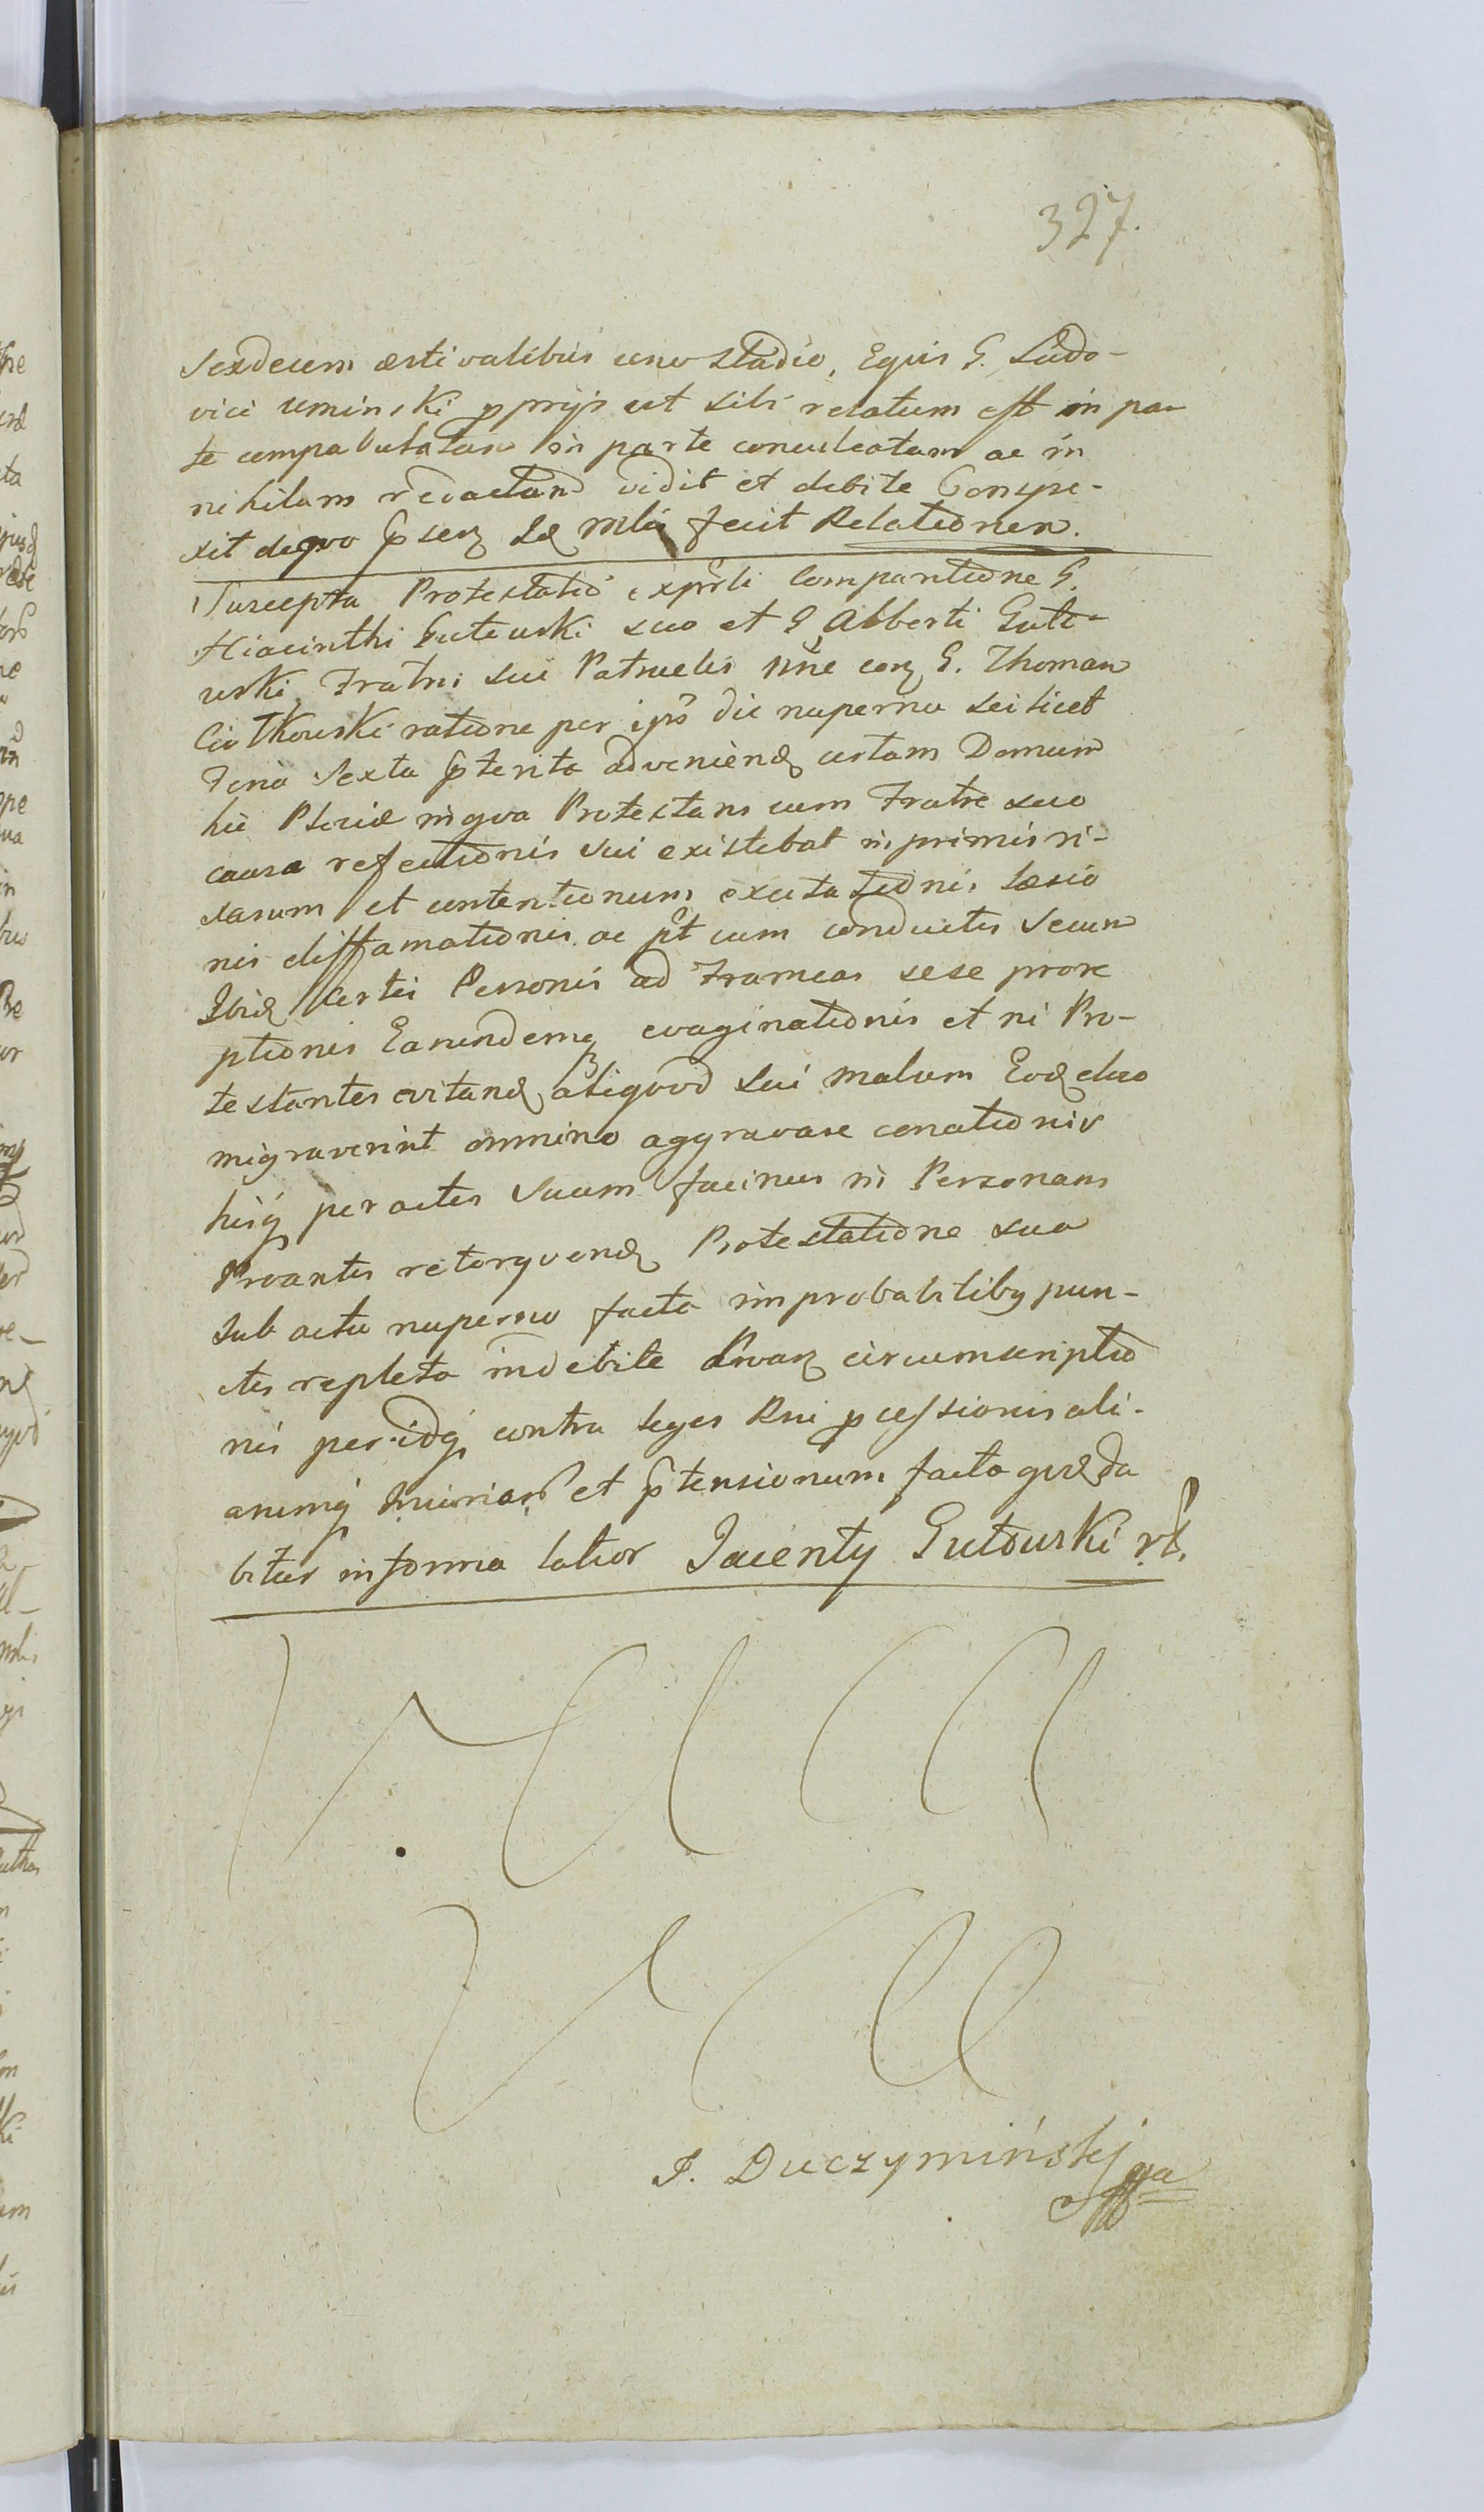 327.
Sexdecem æstivalibus uno Stadio, Eqvis G. Ludo-
vici uminski pprijs ut sibi relatum est in par
te compabulatam in parte conculcatam ac in
nihilum redactam vidit et debite Conspe-
xit deqvo fecit Relationem.
Suscepta Protestatio Comparitione G.
Hiacinthi Gutowski suo et G Alberti Guto-
wski Fratris sui Patruelis nne con G. Thomam
Ciotkowski ratione per ips die nuperna scilicet
Feria Sexta pterita advenien certam Domum
hic in qva Protestans cum Fratre suo
causa refectionis sui existebat inprimis ri-
xarum et contentionum excitationis læsio
nis diffamationis ac pt cum conductis Secum
Ibid certis Personis ad Frameas sese prore
ptionis Earundemq evaginationis et ni Pro-
testantes evitand aliqvod sui malum Eod
migraverint omnino aggravare conationis
hisq peractis Suum facinus in Personam
Prvantis retorqvend Protestatione sua
sub actu nuperno facta improbabiliby pun-
ctis repleta indebite circumscriptio
nis per idq contra leges Rni pcessionis ali-
arumq Iniuriar et ptensionum facta
bitur in forma latior Jacenty Gutowski
J. Duczymiński